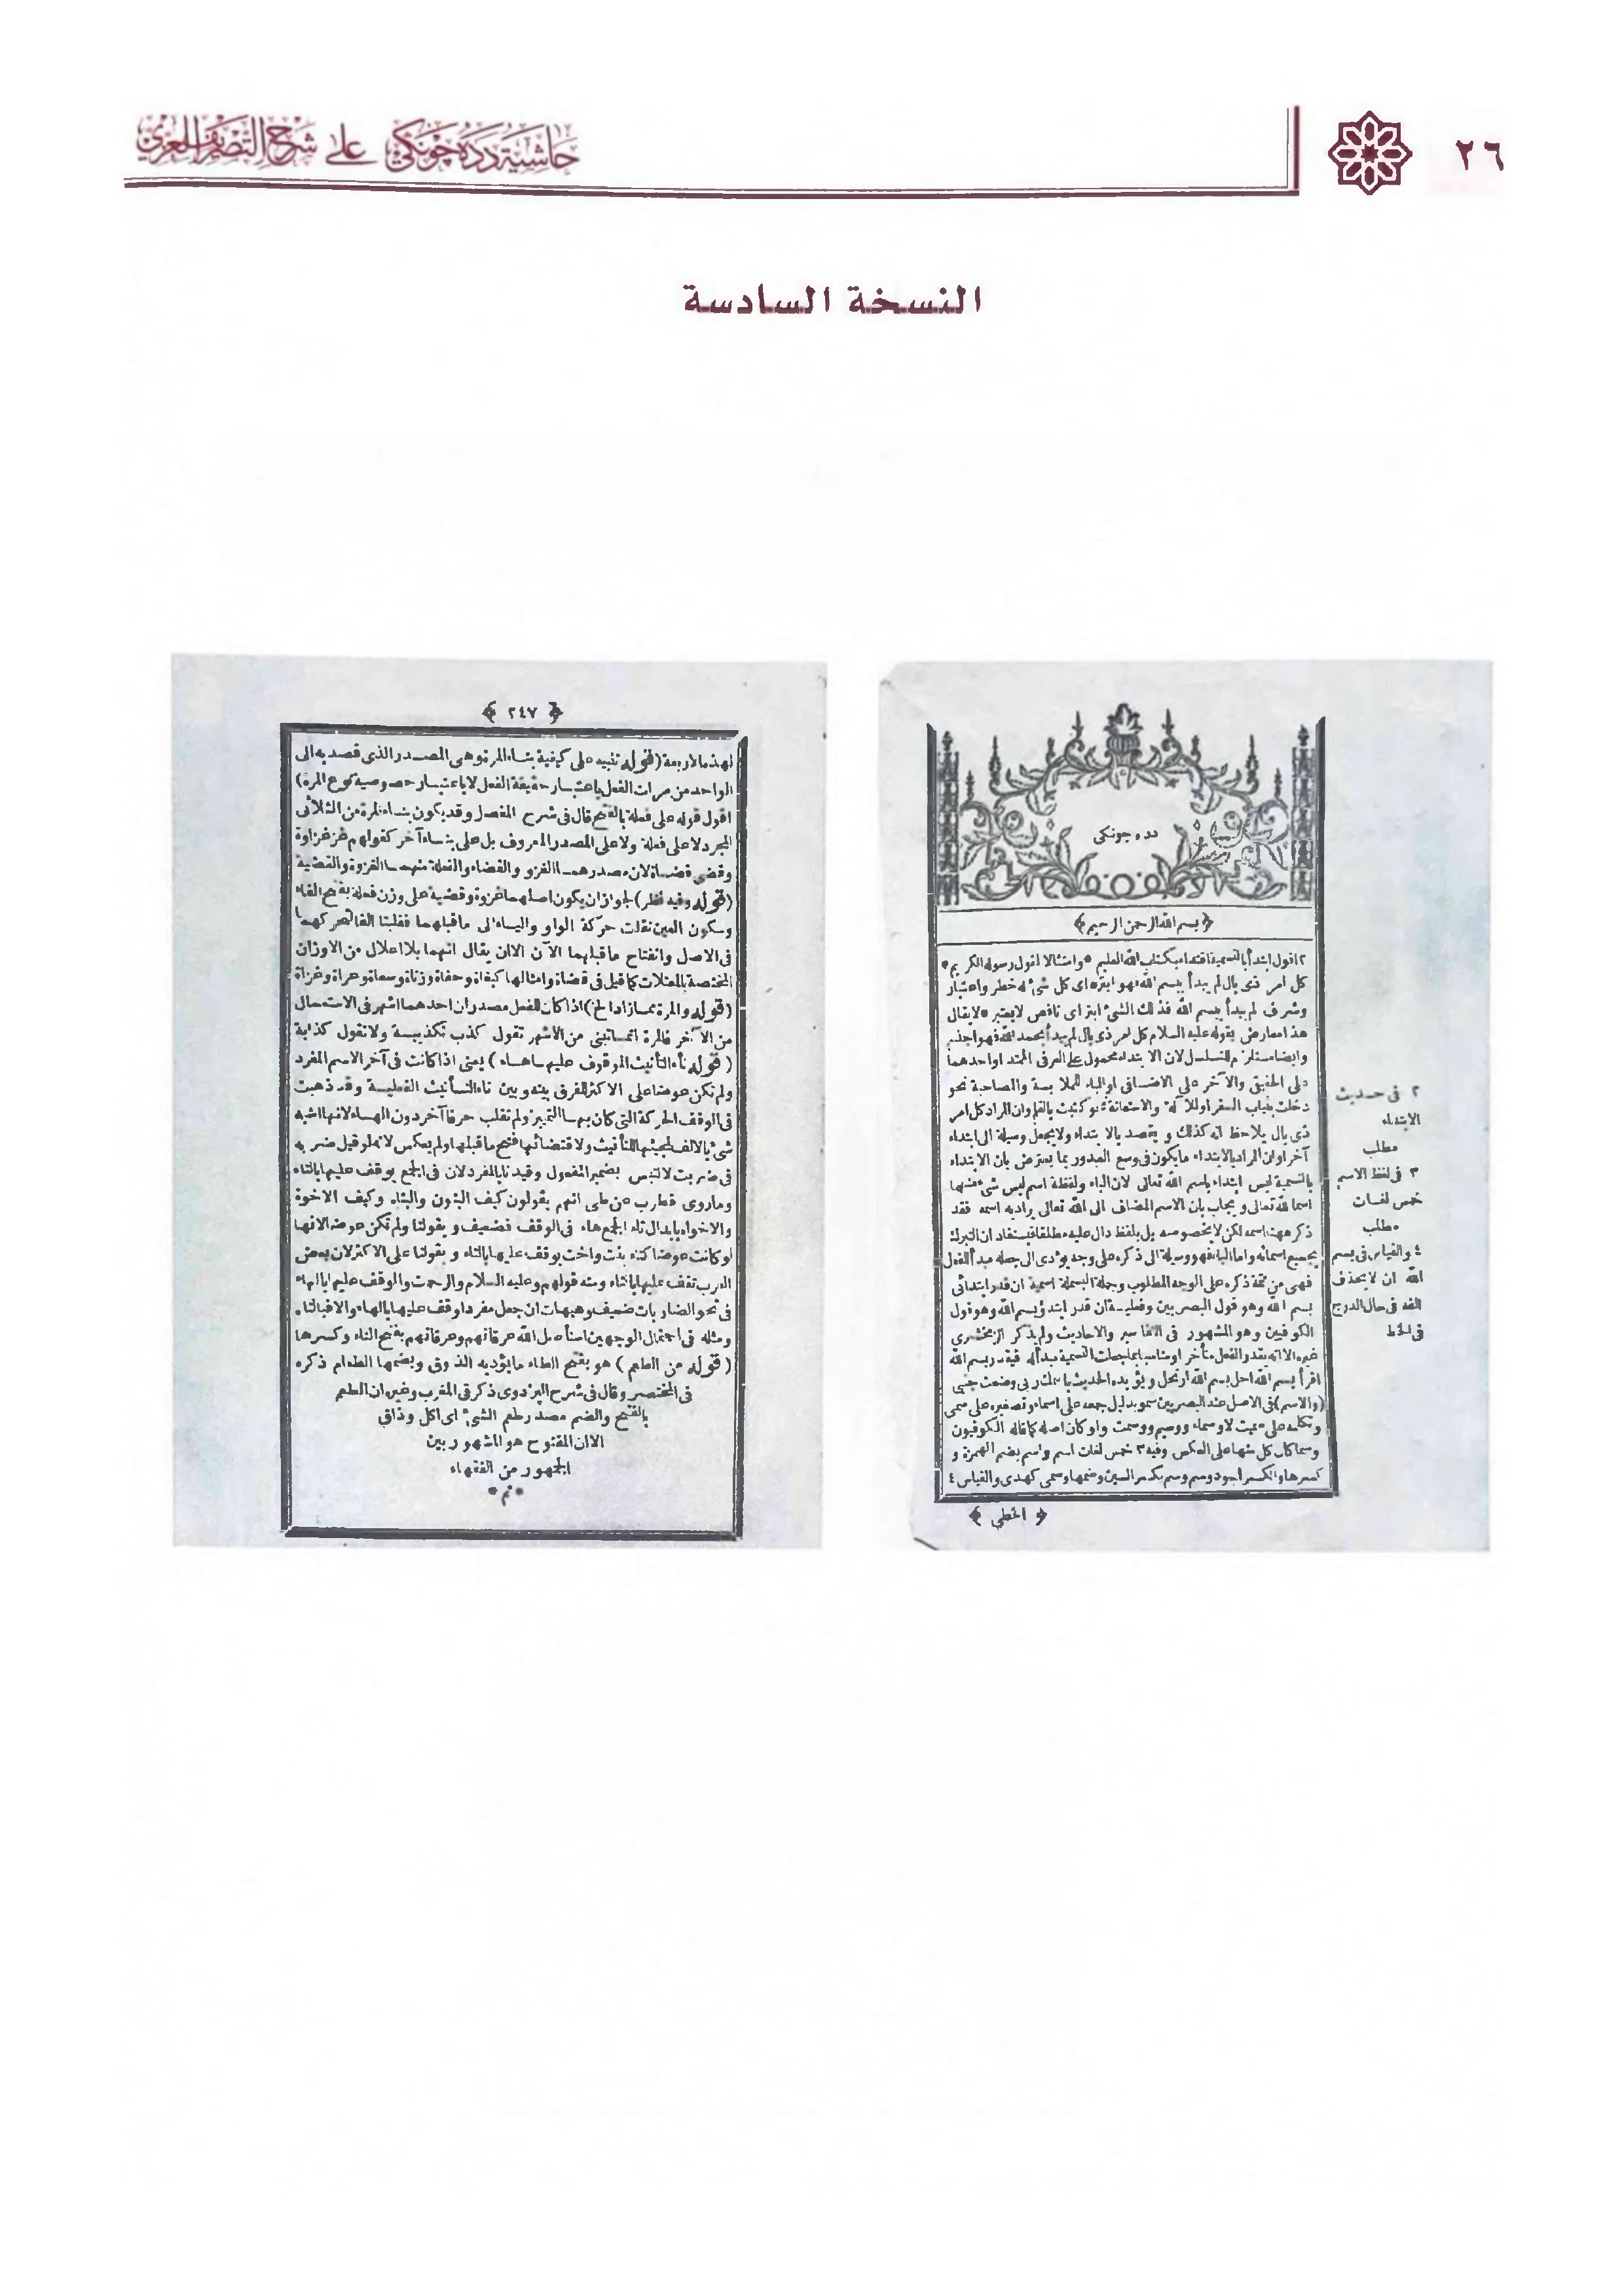 ٢٦
حاشية دده جونكي على شرح التصريف العزي
النسخة السادسة
دده جونكى
﴿ بسم الله الرحمن الرحيم ﴾
٢ اقول ابتدأ بالتسمية اقتداء بكتاب الله العظيم * وامتثالا لقول رسوله الكريم *
كل امر ذى بال لم يبدأ ببسم الله فهو ابتر * اى كل شئ له خطر واعتبار
وشرف لم يبدأ ببسم الله فذلك الشئ ابتر اى ناقص لايعتبر * لايقال
هذا معارض بقوله عليه السلام كل امر ذى بال لم يبدأ بحمد الله فهو اجذم
وايضا مستلزم للتسلسل لان الابتداء محمول على العرفى الممتد او احدهما
على الحقيقى والآخر على الاضافى او الباء للملابسة والمصاحبة نحو
دخلت بثياب السفر او للآلة والاستعانة نحو كتبت بالقلم وان المراد كل امر
ذى بال يلاحظ انه كذلك ويقصد بالابتداء ولايجعل وسيلة الى ابتداء
آخر او ان المراد بالابتداء مايكون فى وسع العبد وربما يعترض بان الابتداء
بالتسمية ليس ابتداء باسم الله تعالى لان الباء ولفظة اسم ليس شئ منهما
اسما لله تعالى ويجاب بان الاسم المضاف الى الله تعالى يراد به اسمه فقد
ذكر ههنا اسمه لكن لا بخصوصه بل بلفظ دال عليه مطلقا فيستفاد ان التبرك
بجميع اسمائه واما الباء فهو وسيلة الى ذكره على وجه يؤدى الى جعله مبدأ للفعل
فهى من تتمة ذكره على الوجه المطلوب وجملة البسملة اسمية ان قدر ابتدائى
بسم الله وهو قول البصريين وفعلية ان قدر ابتدؤ بسم الله وهو قول
الكوفيين وهو المشهور فى التفاسير والاحاديث ولم يذكر الزمخشرى
غيره الا انه يقدر الفعل مؤخرا ومناسبا لما جعلت التسمية مبدأ له فيقدر بسم الله
اقرأ بسم الله احل بسم الله ارتحل ويؤيده الحديث باسمك ربى وضعت جنبى
(والاسم) فى الاصل عند البصريين سمو بدليل جمعه على اسماء وتصغيره على سمى
وتكلمه على سميت لاوسماء ووسيم ووسمت ولو كان اصله كما قاله الكوفيون
وسما لكان كل منها على العكس وفيه ٣ خمس لغات اسم واسم بضم الهمزة و
كسرها والكسر اجود وسم وسم بكسر السين وضمها وسمى كهدى والقياس ٤
﴿ الخطى ﴾
٢ فى حديث
الابتداء
مطلب
٣ فى لفظ الاسم
خمس لغات
مطلب
٤ والقياس فى بسم
الله ان لايحذف
الفه فى حال الدرج
فى الخط
﴿ ٢٤٧ ﴾
لهذه الاربعة (قوله تنبيه على كيفية بناء المرة وهى المصدر الذى قصد به الى
الواحد من مرات الفعل باعتبار حقيقة الفعل لا باعتبار خصوصية نوع المرة)
اقول قوله على فعلة بالفتح قال فى شرح المفصل وقد يكون بناء المرة من الثلاثى
المجرد لاعلى فعلة ولا على المصدر المعروف بل على بناء آخر كقولهم غزا غزاوة
وقضى قضاءة لان مصدرهما الغزو والقضاء والفعلة منهما الغزوة والقضية
(قوله وفيه نظر) لجواز ان يكون اصلهما غزوة وقضية على وزن فعلة بفتح الفاء
وسكون العين نقلت حركة الواو والياء الى ماقبلهما فقلبتا الفا لتحركهما
فى الاصل وانفتاح ماقبلهما الآن الا ان يقال انهما بلا اعلال من الاوزان
المختصة بالمعتلات كما قيل فى قضاة وامثالها
(قوله والمرة مما زاد الخ) اذا كان للفعل مصدران احدهما اشهر فى الاستعمال
من الآخر فالمرة انما تبنى من الاشهر تقول كذب تكذيبة ولا تقول كذابة
(قوله تاء التأنيث الموقوف عليها هاء) يعنى اذا كانت فى آخر الاسم المفرد
ولم تكن عوضا على الاكثر للفرق بينه وبين تاء التأنيث الفعلية وقد ذهبت
فى الوقف الحركة التى كان بها التمييز ولم تقلب حرفا آخر دون الهاء لانها اشبه
شئ بالالف لمجيئها للتأنيث ولاقتضائها فتح ماقبلها ولم يعكس لانه لو قيل ضربه
فى ضربت لالتبس بضمير المفعول وقيدنا بالمفرد لان فى الجمع يوقف عليها بالتاء
وماروى قطرب عن طى انهم يقولون كيف البنون والبناه وكيف الاخوة
والاخواه بابدال تاء الجمع هاء فى الوقف فضعيف وبقولنا ولم تكن عوضا لانها
لو كانت عوضا كتاء بنت واخت يوقف عليها بالتاء وبقولنا على الاكثر لان بعض
العرب تقف عليها بالتاء ومنه قولهم وعليه السلام والرحمت والوقف عليها بالهاء
فى نحو الضاربات ضعيف وهيهات ان جعل مفردا وقف عليها بالهاء والا فبالتاء
ومثله فى احتمال الوجهين استأصل الله عرقاتهم وعرقاتهم بفتح التاء وكسرها
(قوله من الطعم) هو بفتح الطاء مايؤديه الذوق وبضمها الطعام ذكره
فى المختصر وقال فى شرح البزدوى ذكر فى المغرب وغيره ان الطعم
بالفتح والضم مصدر طعم الشئ اى اكل وذاق
الا ان المفتوح هو المشهور بين
الجمهور من الفقهاء
* تم *